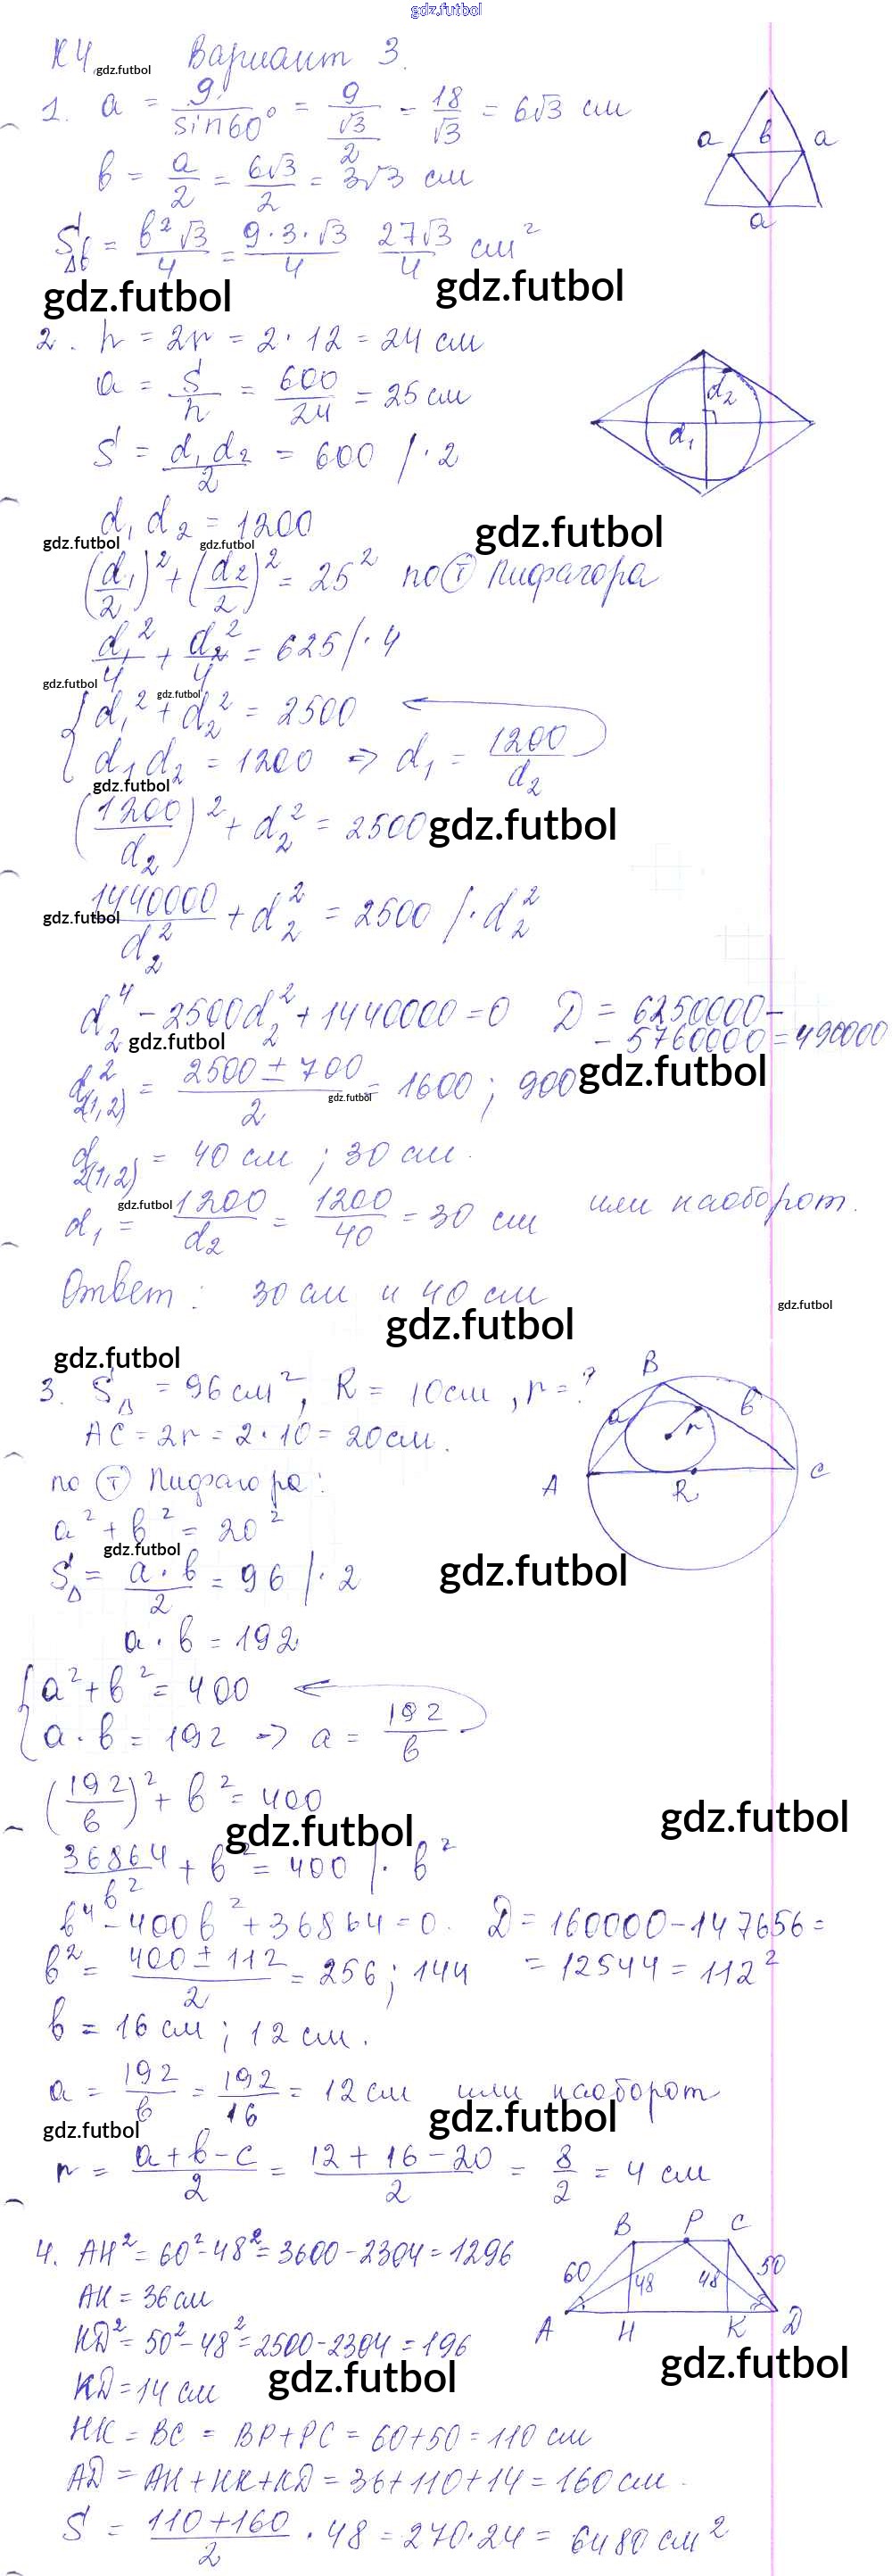 gdz.futbol
К4 gdz.futbol Вариант 3.
1. a = 9/sin60° = 9/(√3/2) = 18/√3 = 6√3 см
a b a
в = a/2 = 6√3/2 = 3√3 см
a
S△в = в²√3/4 = 9·3·√3/4 27√3/4 см²
gdz.futbol gdz.futbol
2. h = 2r = 2·12 = 24 см
a = S/h = 600/24 = 25 см
d₂
d₁
S = d₁d₂/2 = 600 /·2
d₁d₂ = 1200
gdz.futbol gdz.futbol gdz.futbol
(d₁/2)² + (d₂/2)² = 25² по Т Пифагора
d₁²/4 + d₂²/4 = 625 /·4
gdz.futbol gdz.futbol
{ d₁² + d₂² = 2500
d₁d₂ = 1200 => d₁ = 1200/d₂
gdz.futbol
(1200/d₂)² + d₂² = 2500 gdz.futbol
gdz.futbol 1440000/d₂² + d₂² = 2500 /·d₂²
d₂⁴ - 2500d₂² + 1440000 = 0 D = 6250000 -
- 5760000 = 490000
gdz.futbol
d²₂(1,2) = 2500 ± 700/2 = 1600; 900 gdz.futbol
gdz.futbol
d₂(1,2) = 40 см; 30 см.
gdz.futbol
d₁ = 1200/d₂ = 1200/40 = 30 см или наоборот.
Ответ: 30 см и 40 см
gdz.futbol gdz.futbol
gdz.futbol
3. S△ = 96 см², R = 10 см, r = ?
B
a в
r
A R C
AC = 2r = 2·10 = 20 см.
по Т Пифагора:
a² + в² = 20²
gdz.futbol
S△ = a·в/2 = 96 /·2 gdz.futbol
a·в = 192
{ a² + в² = 400
a·в = 192 -> a = 192/в
(192/в)² + в² = 400
gdz.futbol gdz.futbol
36864/в² + в² = 400 /·в²
в⁴ - 400в² + 36864 = 0. D = 160000 - 147656 =
в² = 400 ± 112/2 = 256; 144 = 12544 = 112²
в = 16 см; 12 см.
a = 192/в = 192/16 = 12 см или наоборот
gdz.futbol gdz.futbol
r = a+в-c/2 = 12+16-20/2 = 8/2 = 4 см
4. AH² = 60²-48² = 3600-2304 = 1296
B P C
60 48 48 50
A H K D
AK = 36 см
KD² = 50²-48² = 2500-2304 = 196
gdz.futbol gdz.futbol
KD = 14 см
HK = BC = BP+PC = 60+50 = 110 см
AD = AH+HK+KD = 36+110+14 = 160 см.
S = 110+160/2 · 48 = 270·24 = 6480 см²